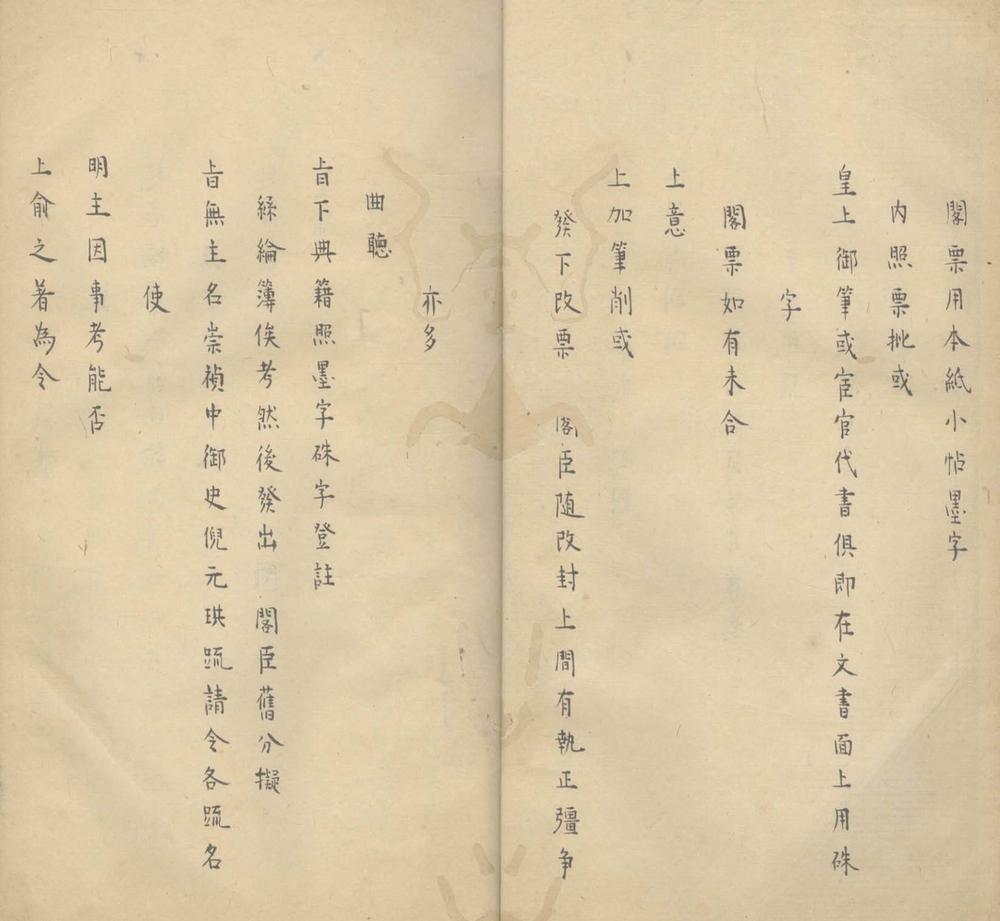 閣票用本紙小帖墨字
内照票批或
皇上御筆或宦官代書俱即在文書面上用硃
字
閣票如有未合
上意
上加筆削或
發下改票 閣臣随改封上間有執正彊争
亦多
曲聽
上旨下典籍照墨字硃字登註
絲綸簿俟考然後發出 閣臣舊分擬
上旨無主名崇禎中御史倪元珙疏請令各疏名
使
明主因事考能否
上俞之著為令